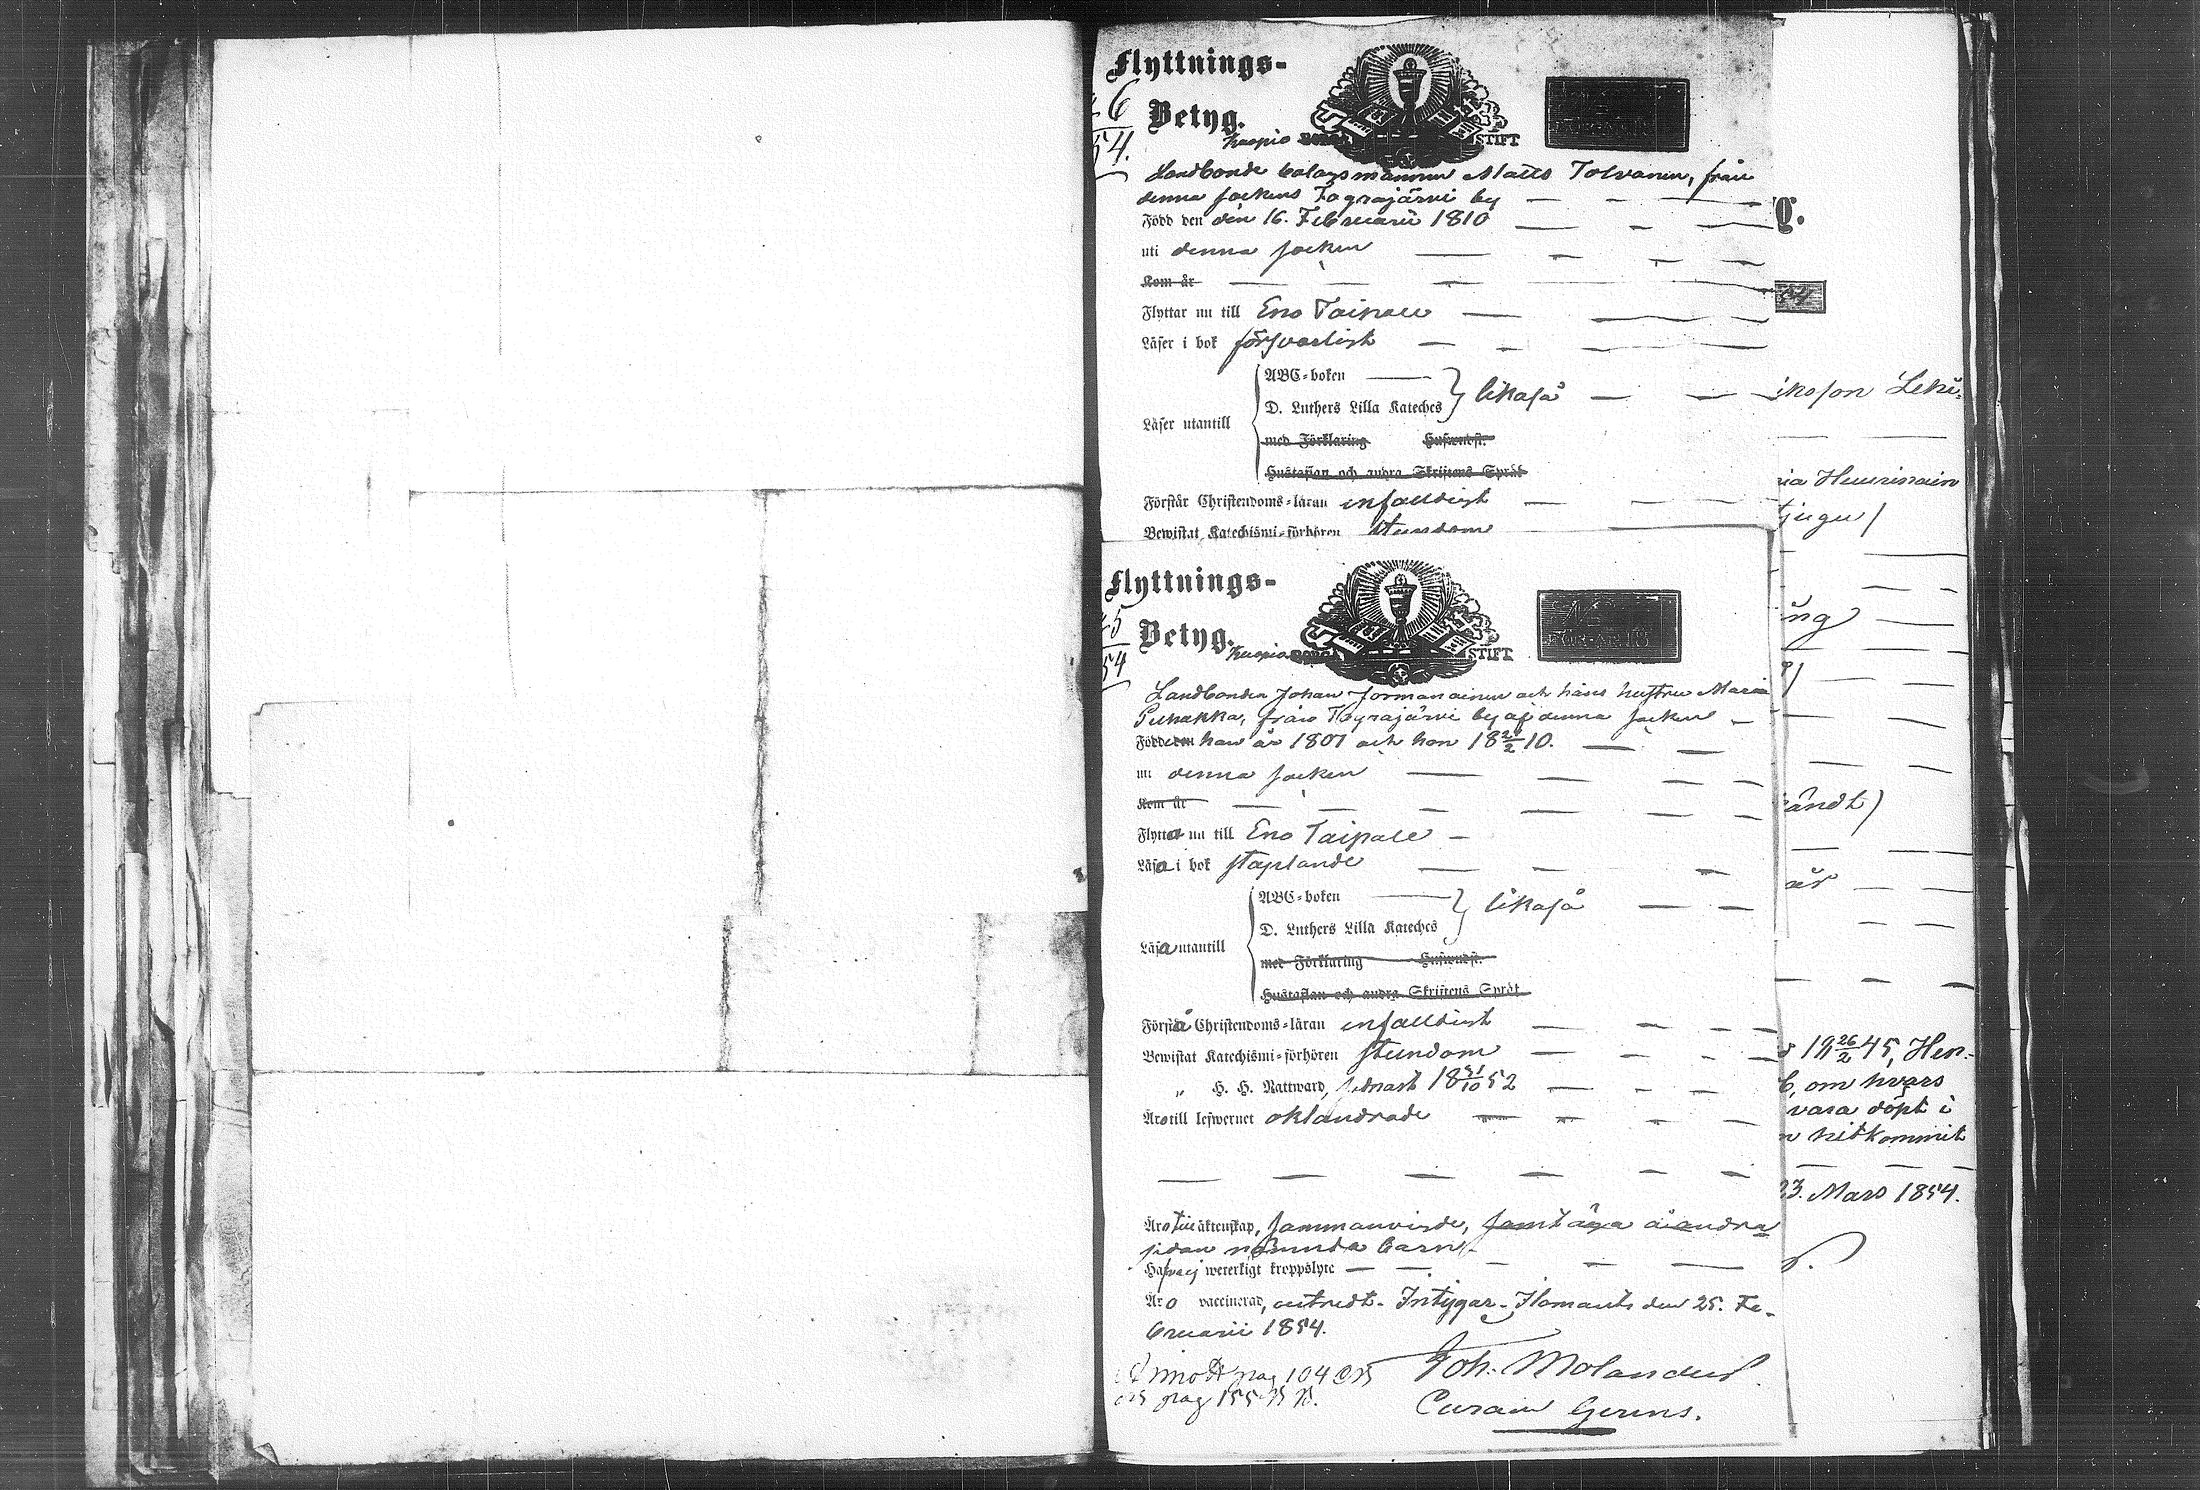 Flyttnings-
46
54.
Betyg.
Kuopio STIFT
Landbonde bolagsmannen Matts Tolvanen, från
denna sockens Tograjärvi by
Född den den 16. Februarii 1810
uti denna socken
Kom år
Flyttar nu till Eno Taipale
Läser i bok försvarligt
ABC-boken
D. Luthers Lilla Kateches } likaså
Läser utantill
med Förklaring Husewndst.
Hustaflan och andra Skriftens Språk
Förstår Christendoms-läran enfaldigt
Bewistat Katechismi-förhören stundom
Flyttnings-
45
54
Betyg.
Kuopio STIFT
Landbonden Johan Jormanainen och hans hustru Maria
Puhakka, från Tograjärvi by af denna socken
Född den han år 1801 och hon 18 10.
uti denna socken
Kom år
Flytta nu till Eno Taipale
Läsa i bok staplande
ABC-boken
D. Luthers Lilla Kateches } likaså
Läsa utantill
med Förklaring
Hustaflan och andra Skriftens Språk
Förstå Christendoms-läran enfaldigt
Bewistat Katechismi-förhören stundom
" H. H. Nattward, sednast 18 31/10 52
Äro till lefwernet oklandrade
Äro till äktenskap, sammanvigde, samt äga å andra
sidan nämnda barn
Hafva ej weterligt kroppslyte
Äro vaccinerad, utredt. Intygar. Ilomants den 25. Fe-
bruarii 1854.
pag 104
pag 155
Joh. Molander.
Curam Gerens.
g.
54
ikson
tjugu)
ing
ändt)
år
18 26/2 45, Hen-
6, om hvars
vara döpt i
n hitkommit
23. Mars 1854.